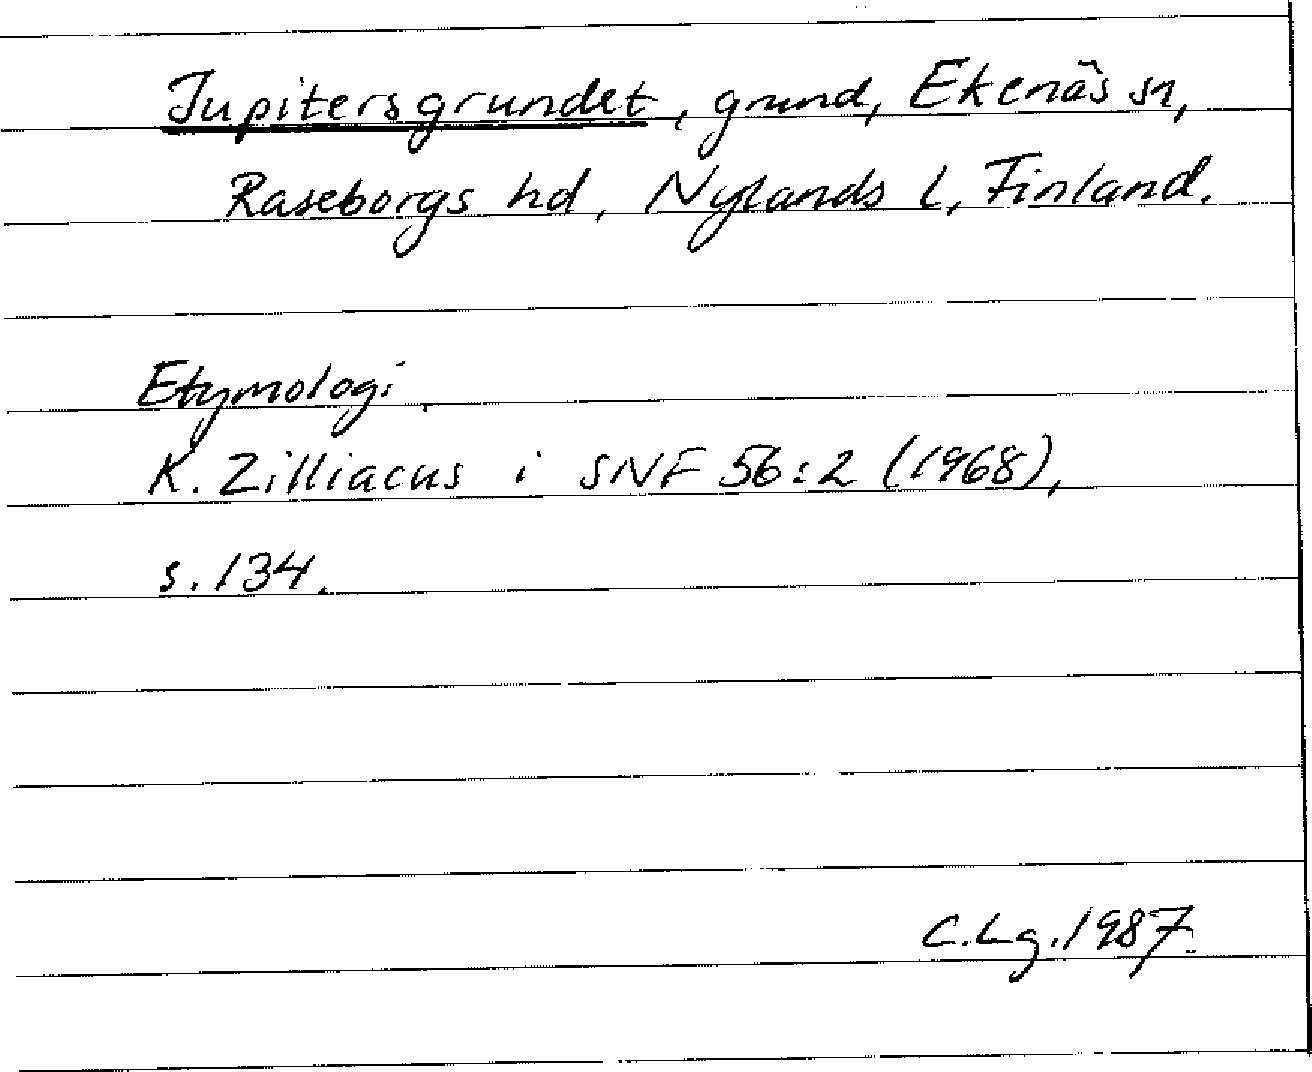 Jupitersgrundet, grund, Ekenäs sn,
Raseborgs hd, Nylands l, Finland.
Etymologi
K. Zilliacus i SNF 56:2 (1968),
s. 134.
C.Lg. 1987.